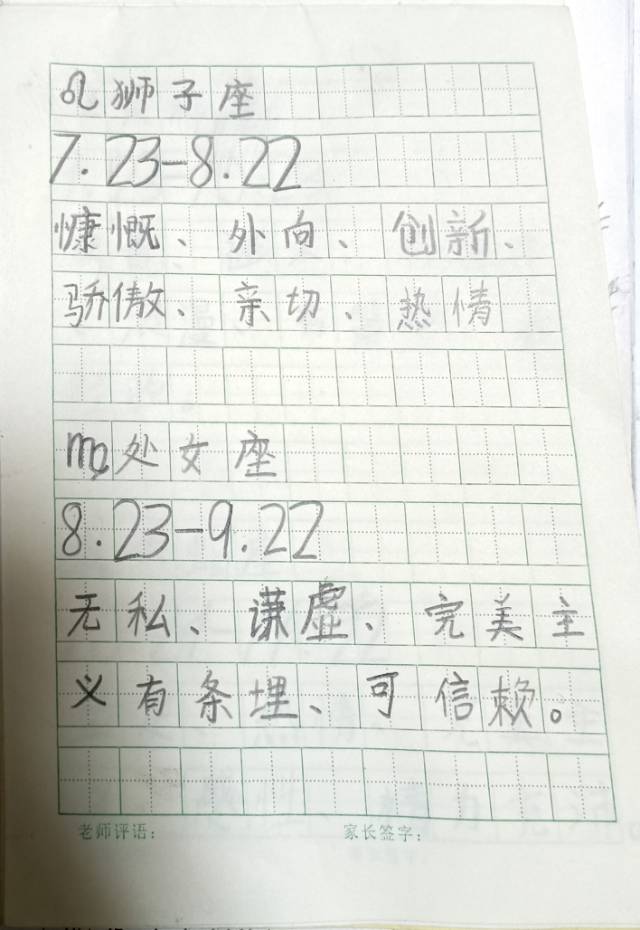 ♌狮子座
7.23-8.22
慷慨、外向、创新、
骄傲、亲切、热情
♍处女座
8.23-9.22
无私、谦虚、完美主
义有条埋、可信赖。
老师评语： 家长签字：